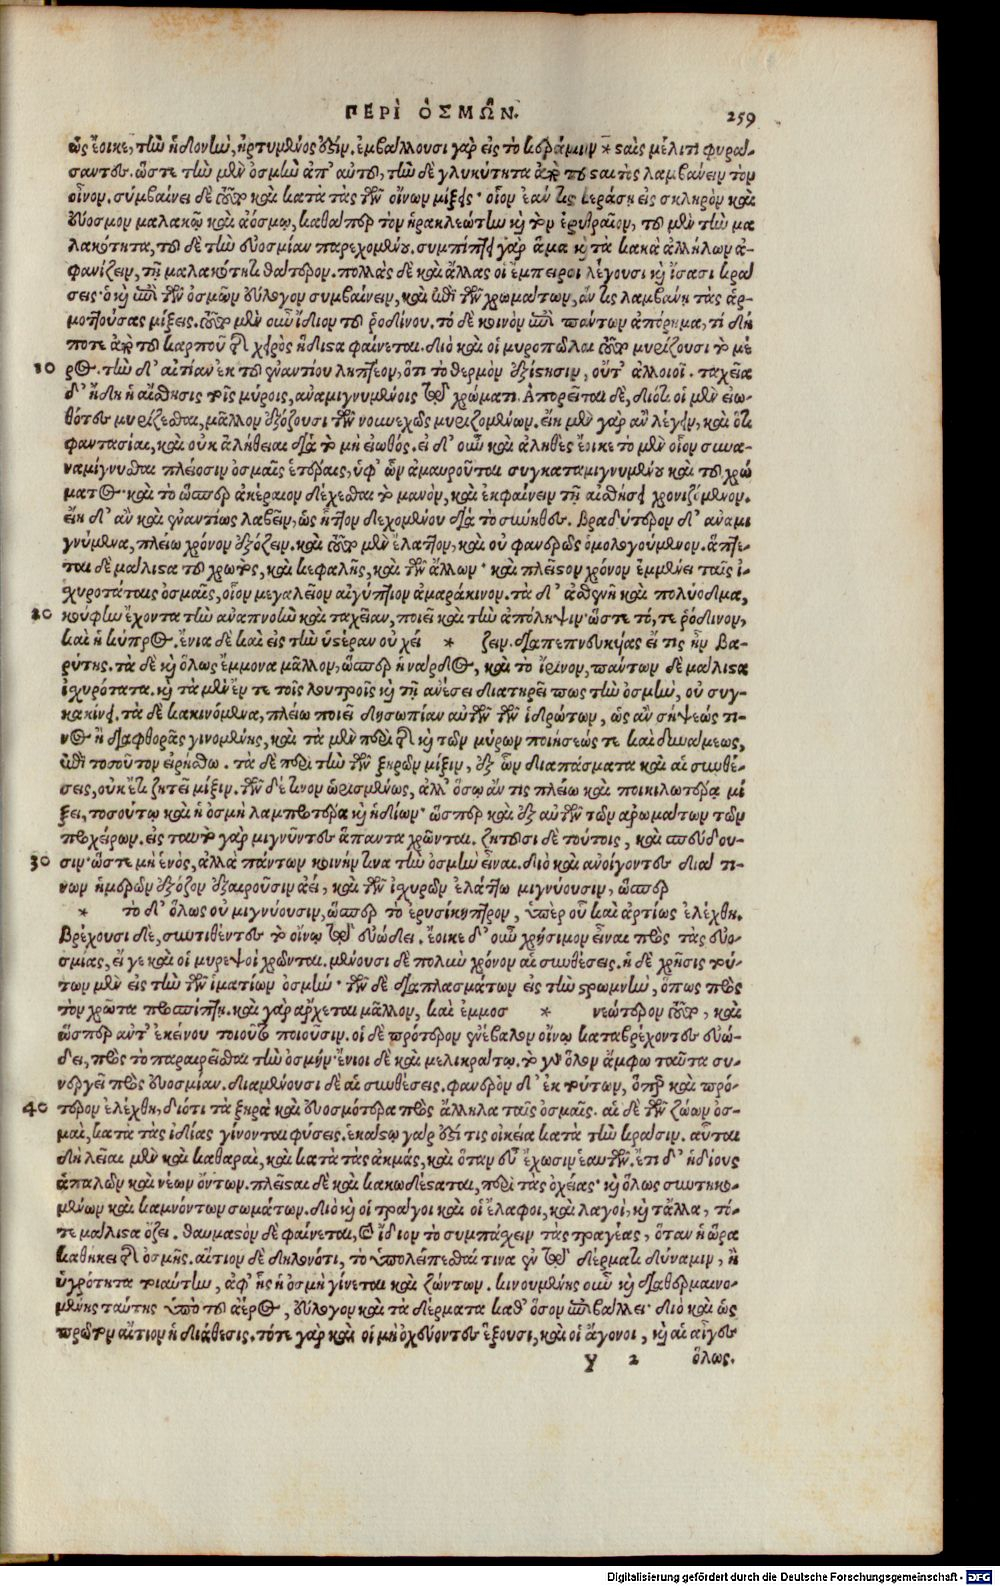 ΠΕΡῚ ὈΣΜΩ͂Ν. 259
ὡς ἔοικε, τὴν ἡδονὴν, ἠρτυμένος ἐστίν. ἐμβάλλουσι γὰρ εἰς τὸ κεράμιον * σαῖς μέλιτι φυρά-
σαντες. ὥστε τὴν μὲν ὀσμὴν ἀπ' αὐτοῦ, τὴν δὲ γλυκύτητα ἀπὸ τοῦ σταιτὸς λαμβάνειν τὸν
οἶνον. συμβαίνει δὲ τοῦτο καὶ κατὰ τὰς τῶν οἴνων μίξεις· οἷον ἐάν τις κεράσῃ εἰς σκληρὸν καὶ
εὔοσμον μαλακῷ καὶ ἀόσμῳ, καθάπερ τὸν ἡρακλεώτην καὶ τὸν ἐρυθραῖον, τοῦ μὲν τὴν μα
λακότητα, τοῦ δὲ τὴν εὐοσμίαν παρεχομένου. συμπίπτει γὰρ ἅμα καὶ τὰ κακὰ ἀλλήλων ἀ-
φανίζειν, τῇ μαλακότητι θάτερον. πολλὰς δὲ καὶ ἄλλας οἱ ἔμπειροι λέγουσι καὶ ἴσασι κρά
σεις· ὃ καὶ ἐπὶ τῶν ὀσμῶν εὔλογον συμβαίνειν, καὶ ἐπὶ τῶν χρωμάτων, ἄν τις λαμβάνῃ τὰς ἁρ-
μοττούσας μίξεις. τοῦτο μὲν οὖν ἴδιον τοῦ ῥοδίνου. τὸ δὲ κοινὸν ἐπὶ πάντων ἀπόρημα, τί δή
ποτε ἀπὸ τοῦ καρποῦ τῆς χειρὸς ἥδιστα φαίνεται. διὸ καὶ οἱ μυροπῶλαι τοῦτο μυρίζουσι τὸ μέ
10 ρος. τὴν δ' αἰτίαν ἐκ τοῦ ἐναντίου ληπτέον, ὅτι τὸ θερμὸν ἐξίστησιν, οὐτ' ἀλλοιοῖ. ταχεῖα
δ' ἤδη ἡ αἴσθησις τοῖς μύροις, ἀναμιγνυμένοις τῷ χρώματι. Ἀπορεῖται δὲ, διότι οἱ μὲν εἰω-
θότες μυρίζεσθαι, μᾶλλον ἐξόζουσι τῶν νοιωεχῶς μυριζομένων. εἴη μὲν γὰρ ἂν λέγειν, καὶ ὅτι
φαντασίαι, καὶ οὐκ ἀλήθειαι διὰ τὸ μὴ εἰωθός. εἰ δ' οὖν καὶ ἀληθὲς ἔοικε τὸ μὲν οἷον συνα-
ναμίγνυσθαι πλείοσιν ὀσμαῖς ἑτέραις, ὑφ' ὧν ἀμαυροῦται συγκαταμιγνυμένου καὶ τοῦ χρώ
ματος· καὶ τὸ ὥσπερ ἀκέραιον δέχεσθαι τὸ μανὸν, καὶ ἐκφαίνειν τῇ αἰσθήσει χρονιζόμενον.
εἴη δ' ἂν καὶ ἐναντίως λαβεῖν, ὡς ἧττον δεχομένου διὰ τὸ σύνηθες. Βραδύτερον δ' ἀναμι
γνύμενα, πλείω χρόνον ἐξόζειν. καὶ τοῦτο μὲν ἔλαττον, καὶ οὐ φανερῶς ὁμολογούμενον. ἅπτε-
ται δὲ μάλιστα τοῦ χρωτὸς, καὶ κεφαλῆς, καὶ τῶν ἄλλων· καὶ πλεῖστον χρόνον ἐμμένει ταῖς ἰ-
χυροτάταις ὀσμαῖς, οἷον μεγαλεῖον αἰγύπτιον ἀμαράκινον. τὰ δ' ἀσθενῆ καὶ πολύοδμα,
20 κούφην ἔχοντα τὴν ἀναπνοὴν καὶ ταχεῖαν, ποιεῖ καὶ τὴν ἀπόληψιν· ὥστε τό, τε ῥόδινον,
καὶ ἡ κύπρος. ἔνια δὲ καὶ εἰς τὴν ὑστέραν οὐχ εἱ * ζειν. διαπεπνευκυίας εἴ τις ἦν βα-
ρύτης. τὰ δὲ καὶ ὅλως ἔμμονα μᾶλλον, ὥσπερ ἡ νάρδος, καὶ τὸ ἴρινον, πάντων δὲ μάλιστα
ἰχυρότατα. καὶ τὰ μὲν ἔν τε τοῖς λουτροῖς καὶ τῇ ἀνέσει διατηρεῖ πως τὴν ὀσμὴν, οὐ συγ-
κακίνει. τὰ δὲ κακινόμενα, πλείω ποιεῖ δυσωπίαν αὐτῶν τῶν ἱδρώτων, ὡς ἂν σήψεώς τι-
νος ἢ διαφθορᾶς γινομένης, καὶ τὰ μὲν περὶ τῆς καὶ τῶν μύρων ποιήσεώς τε καὶ δυνάμεως,
ἐπὶ τοσοῦτον εἰρήσθω. τὰ δὲ περὶ τὴν τῶν ξηρῶν μίξιν, ἐξ ὧν διαπάσματα καὶ αἱ συνθέ-
σεις, οὐκέτι ζητεῖ μίξιν. τῶν δέ τινον ὡρισμένως, ἀλλ' ὅσῳ ἄν τις πλείω καὶ ποικιλωτέρα μί
ξει, τοσούτῳ καὶ ἡ ὀσμὴ λαμπροτέρα καὶ ἡδίων· ὥσπερ καὶ ἐξ αὐτῶν τῶν ἀρωμάτων τῶν
προχείρων. εἰς ταυτὸ γὰρ μιγνῦντες ἅπαντα χρῶνται. ζητοῦσι δὲ τούτοις, καὶ σπεύδου-
30 σιν· ὥστε μὴ ἑνὸς, ἀλλὰ πάντων κοινήν τινα τὴν ὀσμὴν εἶναι. διὸ καὶ ἀνοίγοντες διά τι-
νων ἡμερῶν ἐξόζον ἐξαιροῦσιν ἀεί, καὶ τῶν ἰχυρῶν ἐλάττω μιγνύουσιν, ὥσπερ
* τὸ δ' ὅλως οὐ μιγνύουσιν, ὥσπερ τὸ ἐρυσίκηπτρον, ὑπὲρ οὗ καὶ ἀρτίως ἐλέχθη.
Βρέχουσι δὲ, συντιθέντες τὸ οἴνῳ τῷ εὐώδει. ἔοικε δ' οὖν χρήσιμον εἶναι πρὸς τὰς εὐο-
σμίας, εἴ γε καὶ οἱ μυρεψοὶ χρῶνται. μένουσι δὲ πολὺν χρόνον αἱ συνθέσεις. ἡ δὲ χρῆσις τού-
των μὲν εἰς τὴν τῶν ἱματίων ὀσμήν· τῶν δὲ διαπλασμάτων εἰς τὴν στρωμνὴν, ὅπως πρὸς
τὸν χρῶτα προσπίπτῃ. καὶ γὰρ ἄρχεται μᾶλλον, καὶ ἐμμοσ * νεώτερον τοῦτο, καὶ
ὥσπερ αὐτ' ἐκείνου τοιοῦτο ποιοῦσιν. οἱ δὲ πρότερον ἐνέβαλον οἴνῳ καταβρέχοντες εὐώ-
δει, πρὸς τὸ παραιρεῖσθαι τὴν ὀσμήν· ἔνιοι δὲ καὶ μελικράτῳ. τὸ γὰρ ὅλον ἄμφω ταῦτα συ-
νεργεῖ πρὸς εὐοσμίαν. διαμένουσι δὲ αἱ συνθέσεις. φανερὸν δ' ἐκ τούτων, ὅπερ καὶ πρό-
40 τερον ἐλέχθη, διότι τὰ ξηρὰ καὶ εὐοσμότερα πρὸς ἄλληλα ταῖς ὀσμαῖς. αἱ δὲ τῶν ζώων ὀσ-
μαὶ, κατὰ τὰς ἰδίας γίνονται φύσεις. ἑκάστῳ γάρ ἐστί τις οἰκεία κατὰ τὴν κρᾶσιν. αὗται
δὴ λεῖαι μὲν καὶ καθαραὶ, καὶ κατὰ τὰς ἀκμάς, καὶ ὅταν εὖ ἔχωσιν ἑαυτῶν. ἔτι δ' ἡδίους
ἁπαλῶν καὶ νέων ὄντων. πλεῖσται δὲ καὶ κακωδέσταται, περὶ τὰς ὀχείας· καὶ ὅλως συντηκο-
μένων καὶ καμνόντων σωμάτων. διὸ καὶ οἱ τράγοι καὶ οἱ ἔλαφοι, καὶ λαγοὶ, καὶ τἆλλα, τό-
τε μάλιστα ὄζει. θαυμαστὸν δὲ φαίνεται, καὶ ἴδιον τὸ συμπάχειν τὰς τραγέας, ὅταν ἡ ὥρα
καθήκει τῆς ὀσμῆς. αἴτιον δὲ δηλονότι, τὸ ὑπολείπεσθαί τινα ἐν τῷ δέρματι δύναμιν, ἢ
ὑγρότητα τοιαύτην, ἀφ' ἧς ἡ ὀσμὴ γίνεται καὶ ζώντων. κινουμένης οὖν καὶ διαθερμαινο-
μένης ταύτης ὑπὸ τοῦ ἀέρος, εὔλογον καὶ τὰ δέρματα καθ' ὅσον ἐπιβάλλει· διὸ καὶ ὡς
πρῶτον αἴτιον ἡ διάθεσις. τότε γὰρ καὶ οἱ μὴ ὀχεύοντες ἕξουσι, καὶ οἱ ἄγονοι, καὶ αἱ αἶγες
y 2 ὅλως.
Digitalisierung gefördert durch die Deutsche Forschungsgemeinschaft - DFG